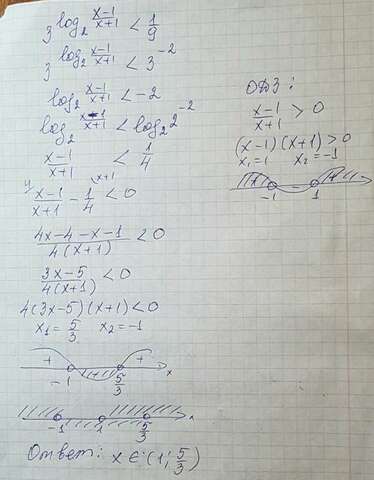 3^{log_2 \frac{x-1}{x+1}} < \frac{1}{9}
3^{log_2 \frac{x-1}{x+1}} < 3^{-2}
log_2 \frac{x-1}{x+1} < -2
log_2 \frac{x-1}{x+1} < log_2 2^{-2}
\frac{x-1}{x+1} < \frac{1}{4}
4 x+1
\frac{x-1}{x+1} - \frac{1}{4} < 0
\frac{4x-4-x-1}{4(x+1)} < 0
\frac{3x-5}{4(x+1)} < 0
4(3x-5)(x+1) < 0
x_1 = \frac{5}{3} x_2 = -1
+ +
-1 \frac{5}{3} x
-1 1 \frac{5}{3} x
Ответ: x ∈ (1; \frac{5}{3})
ОДЗ:
\frac{x-1}{x+1} > 0
(x-1)(x+1) > 0
x_1 = 1 x_2 = -1
+ - +
-1 1